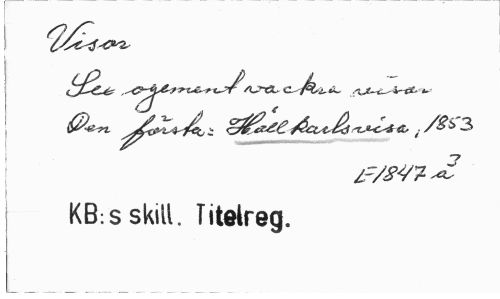 Visor
Sex ogement vackra visor
Den första: Hållkarlsvisa, 1853
E1847 a³
KB:s skill. Titelreg.